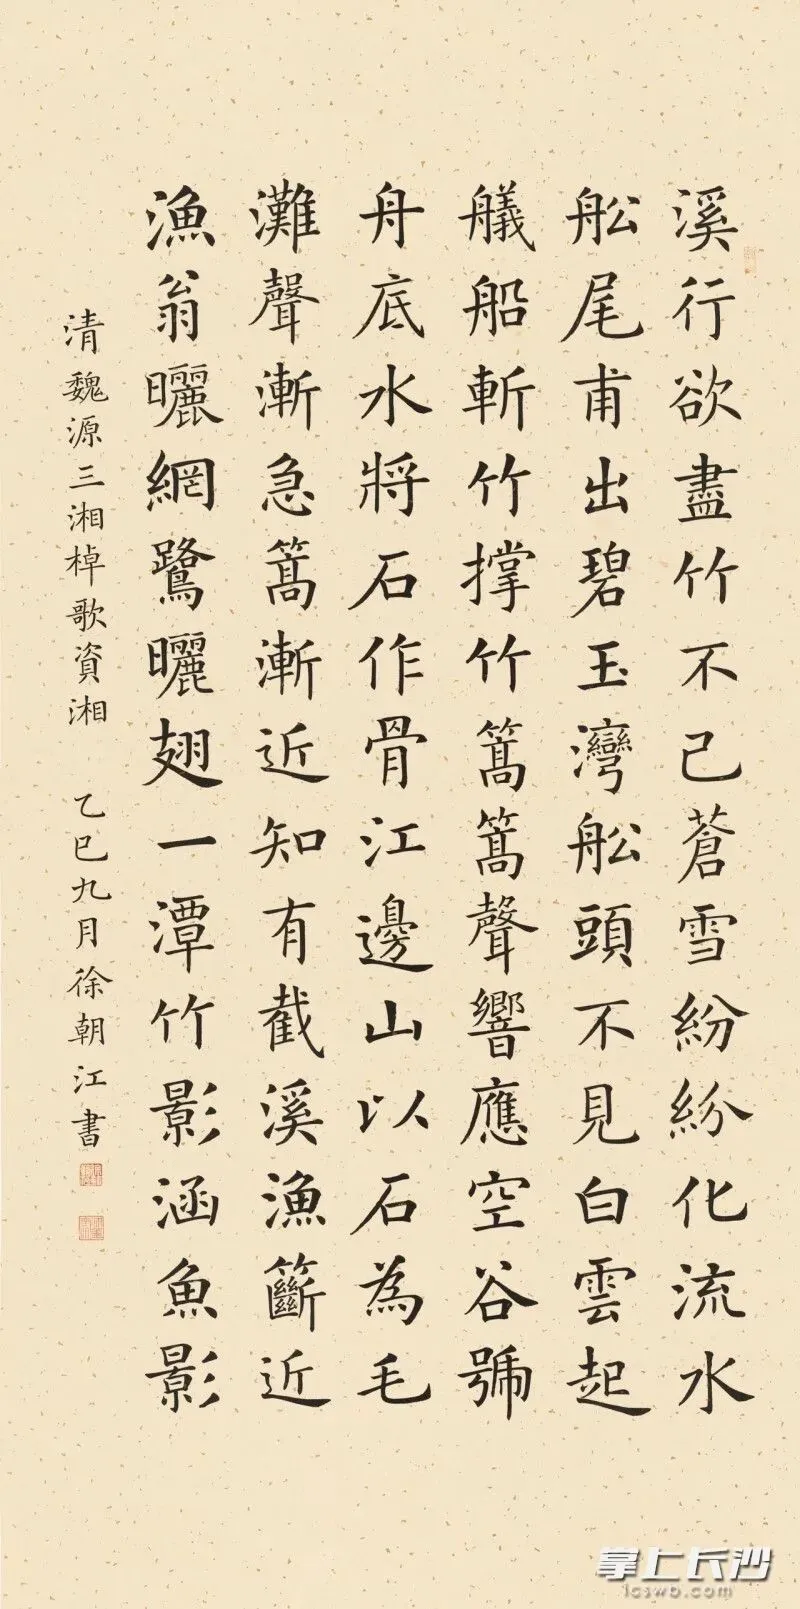 溪行欲盡竹不己蒼雪紛紛化流水
舩尾甫出碧玉灣舩頭不見白雲起
艤船斬竹撑竹篙篙聲響應空谷號
舟底水將石作骨江邊山以石為毛
灘聲漸急篙漸近知有截溪漁籪近
漁翁曬網鷺曬翅一潭竹影涵魚影
清魏源三湘棹歌資湘 乙巳九月徐朝江書
掌上长沙
icswb.com